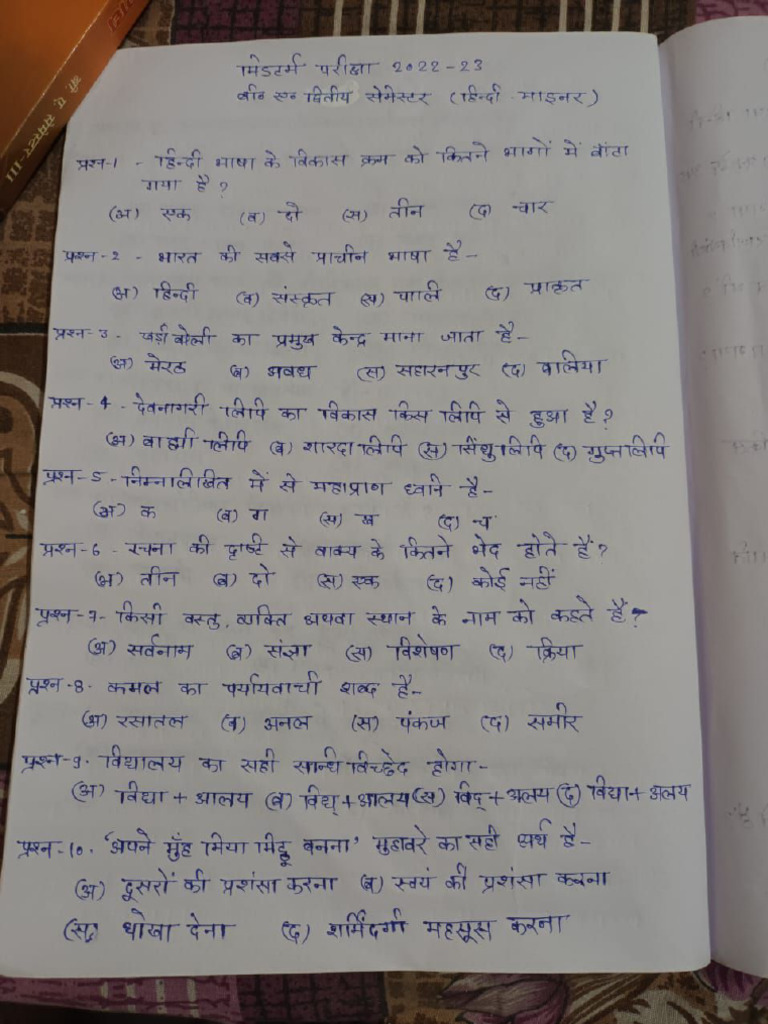 बी. ए. सेमेस्टर-III
मिडटर्म परीक्षा 2022-23
बी० ए० द्वितीय सेमेस्टर (हिन्दी माइनर)
प्रश्न-1 - हिन्दी भाषा के विकास क्रम को कितने भागों में बांटा
गया है?
(अ) एक (ब) दो (स) तीन (द) चार
प्रश्न-2 - भारत की सबसे प्राचीन भाषा है-
(अ) हिन्दी (ब) संस्कृत (स) पालि (द) प्राकृत
प्रश्न-3. खड़ी बोली का प्रमुख केन्द्र माना जाता है-
(अ) मेरठ (ब) अवध (स) सहारनपुर (द) बालिया
प्रश्न-4 - देवनागरी लिपि का विकास किस लिपि से हुआ है?
(अ) ब्राह्मी लिपि (ब) शारदा लिपि (स) सिंधु लिपि (द) गुप्त लिपि
प्रश्न-5 - निम्नलिखित में से महाप्राण ध्वनि है-
(अ) क (ब) ग (स) ख (द) च
प्रश्न-6 - रचना की दृष्टि से वाक्य के कितने भेद होते हैं?
(अ) तीन (ब) दो (स) एक (द) कोई नहीं
प्रश्न-7- किसी वस्तु, व्यक्ति अथवा स्थान के नाम को कहते हैं?
(अ) सर्वनाम (ब) संज्ञा (स) विशेषण (द) क्रिया
प्रश्न-8- कमल का पर्यायवाची शब्द है-
(अ) रसातल (ब) अनल (स) पंकज (द) समीर
प्रश्न-9- विद्यालय का सही सन्धि विच्छेद होगा-
(अ) विद्या + आलय (ब) विद्य् + आलय (स) विद् + अलय (द) विद्या + अलय
प्रश्न-10. 'अपने मुँह मिया मिट्ठू बनना' मुहावरे का सही अर्थ है-
(अ) दूसरों की प्रशंसा करना (ब) स्वयं की प्रशंसा करना
(स) धोखा देना (द) शर्मिंदगी महसूस करना